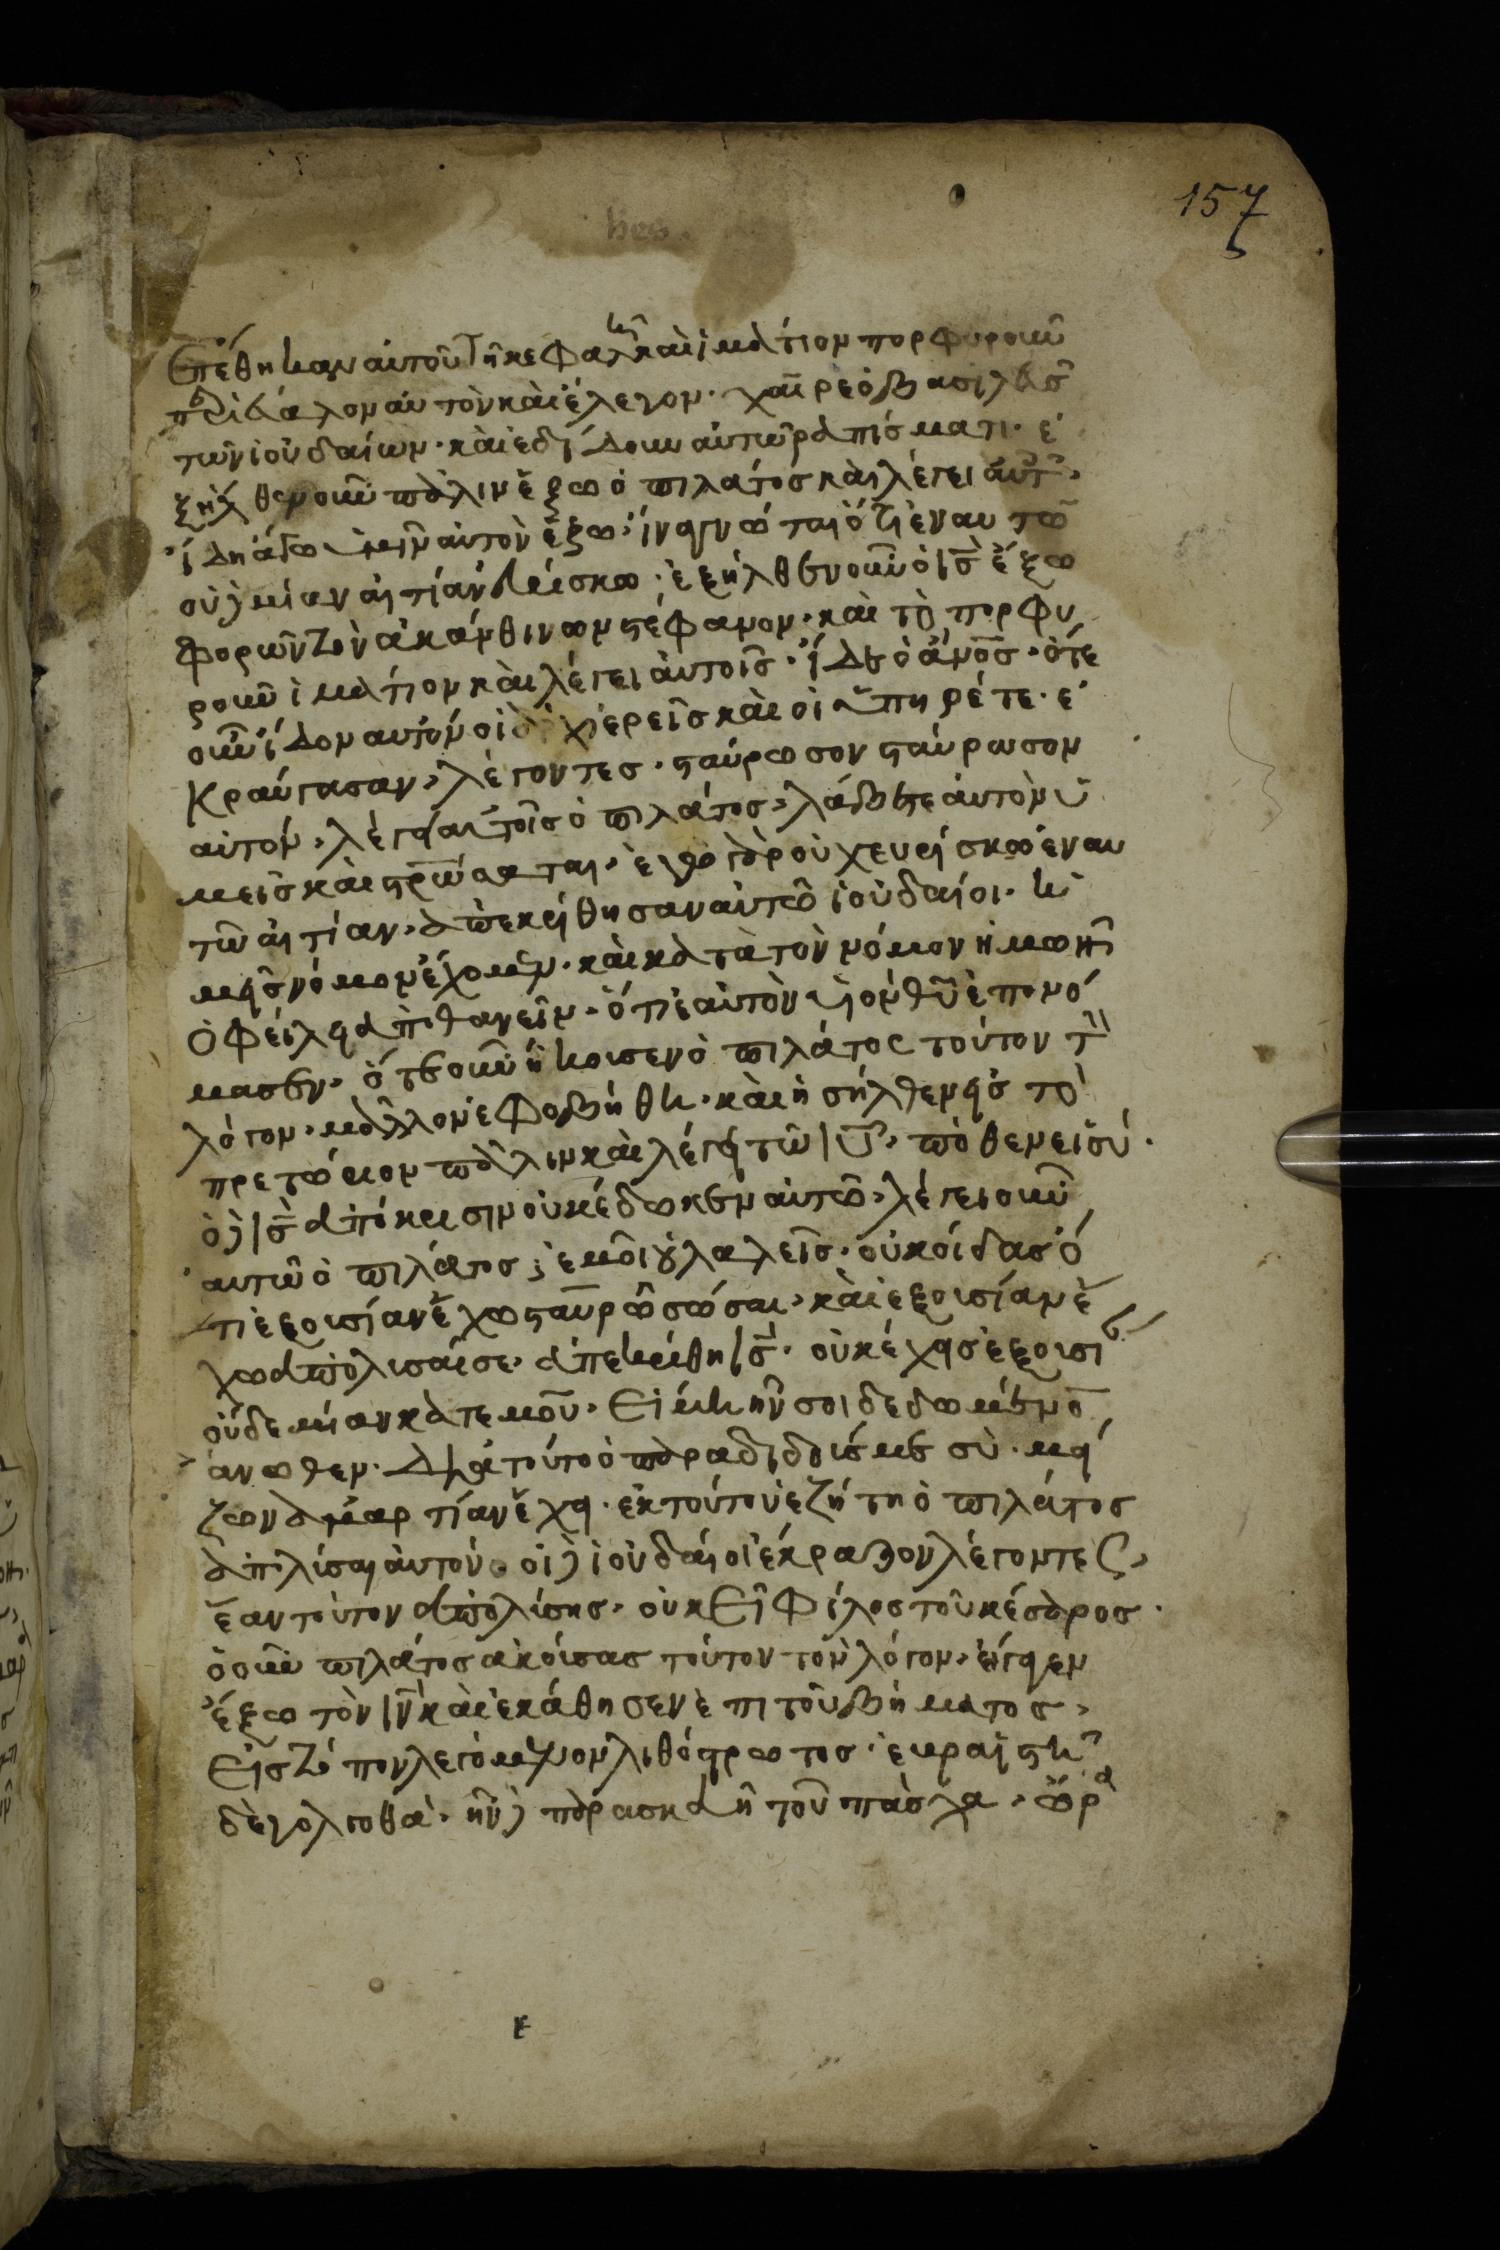 157
ἐπέθηκαν αὐτοῦ τῇ κεφαλῇ καὶ ἱμάτιον πορφυροῦν
περιέβαλον αὐτὸν καὶ ἔλεγον· χαῖρε ὁ βασιλεῦς
τῶν ἰουδαίων· καὶ ἐδίδουν αὐτῶ ραπίσματι· ἐ
ξήλθεν οὖν πάλιν ἔξω ὁ πιλάτος καὶ λέγει αὐτ
ἴδη ἄγω ὑμῖν αὐτὸν ἔξω· ἵνα γνώται ὅτι ἐν αυτῶ
οὐδεμίαν αἰτίαν εὑρίσκω· ἐξήλθεν οὖν ὁ ις ἔξω
φορῶν τὸν ἀκάνθινων στέφανον· καὶ τὸ πορφυ
ροῦν ἱμάτιον καὶ λέγει αὐτοῖς· ἴδε ὁ ἄνος· ὅτε
οὖν ἴδον αυτόν οἱ ἀρχιερεῖς καὶ οἱ ὑπηρέτε· ἐ
κραύγασαν, λέγοντες· σταύρωσον σταύρωσον
αὐτόν, λέγει αὐτοῖς ὁ πιλάτος, λάβετε αὐτὸν ὑ
μεῖς καὶ στρώσαται, ἐγὼ γὰρ οὐχ ευρίσκω ἐν αυ
τῶ αἰτίαν, ἀπεκρίθησαν αὐτῶ ἰουδαίοι· η
μεῖς νόμον ἔχομεν· καὶ κατὰ τὸν νόμον ἡμων
ὀφείλει ἀποθανεῖν· ὅτι ἑαυτὸν υἱον θυ ἐποιό
μασεν, ὅτε οὖν ἤκουσεν ὁ πιλάτος τοῦτον τὸν
λόγον, μάλλον ἐφοβήθη· καὶ ἠσήλθεν εἰς τὸ
πρετώριον πάλιν καὶ λέγει τῶ ιυ, πόθεν εἶ σύ·
ὁ δὲ ις ἀπόκρισιν οὐκ έδωκεν αὐτῶ, λέγει οὖν
αυτῶ ὁ πιλάτος; ἐμοὶ οὐ λαλεῖς· οὐκ οίδας ὅ
τι ἐξουσίαν ἔχω σταυρῶσώσαι, καὶ ἐξουσίαν ἔ
χω ἀπολισαί σε· ἀπεκρίθη ις· οὐκ έχεις ἐξουσι
οὐδεμίαν κατ εμοῦ· Εἰ μη ἦν σοι δεδωμένο
άνωθεν· Διὰ τούτο ὁ παραδιδούς με σὺ· μεί
ζων ἁμαρτίαν ἔχει· ἐκ τούτου ἐζήτη ὁ πιλάτος
ἀπολίσαι αὐτόν· οἱ δὲ ἰουδαίοι έκραζον λέγοντες,
ἔαν τοῦτον ἀπολίσης, οὐκ Εἶ φίλος τοῦ κέσαρος·
ὁ οὖν πιλάτος ἀκούσας τούτον τὸν λόγον, ἤγαγεν
ἔξω τὸν ιν καὶ ἐκάθησεν ἐπι τοῦ βήματος,
Εἰς τόπον λεγόμενον λιθόστρωτος· ἑυραϊστη
δὲ γολγοθὰ· ἦν δὲ παρασκευὴ τοῦ πάσχα, ὥρα